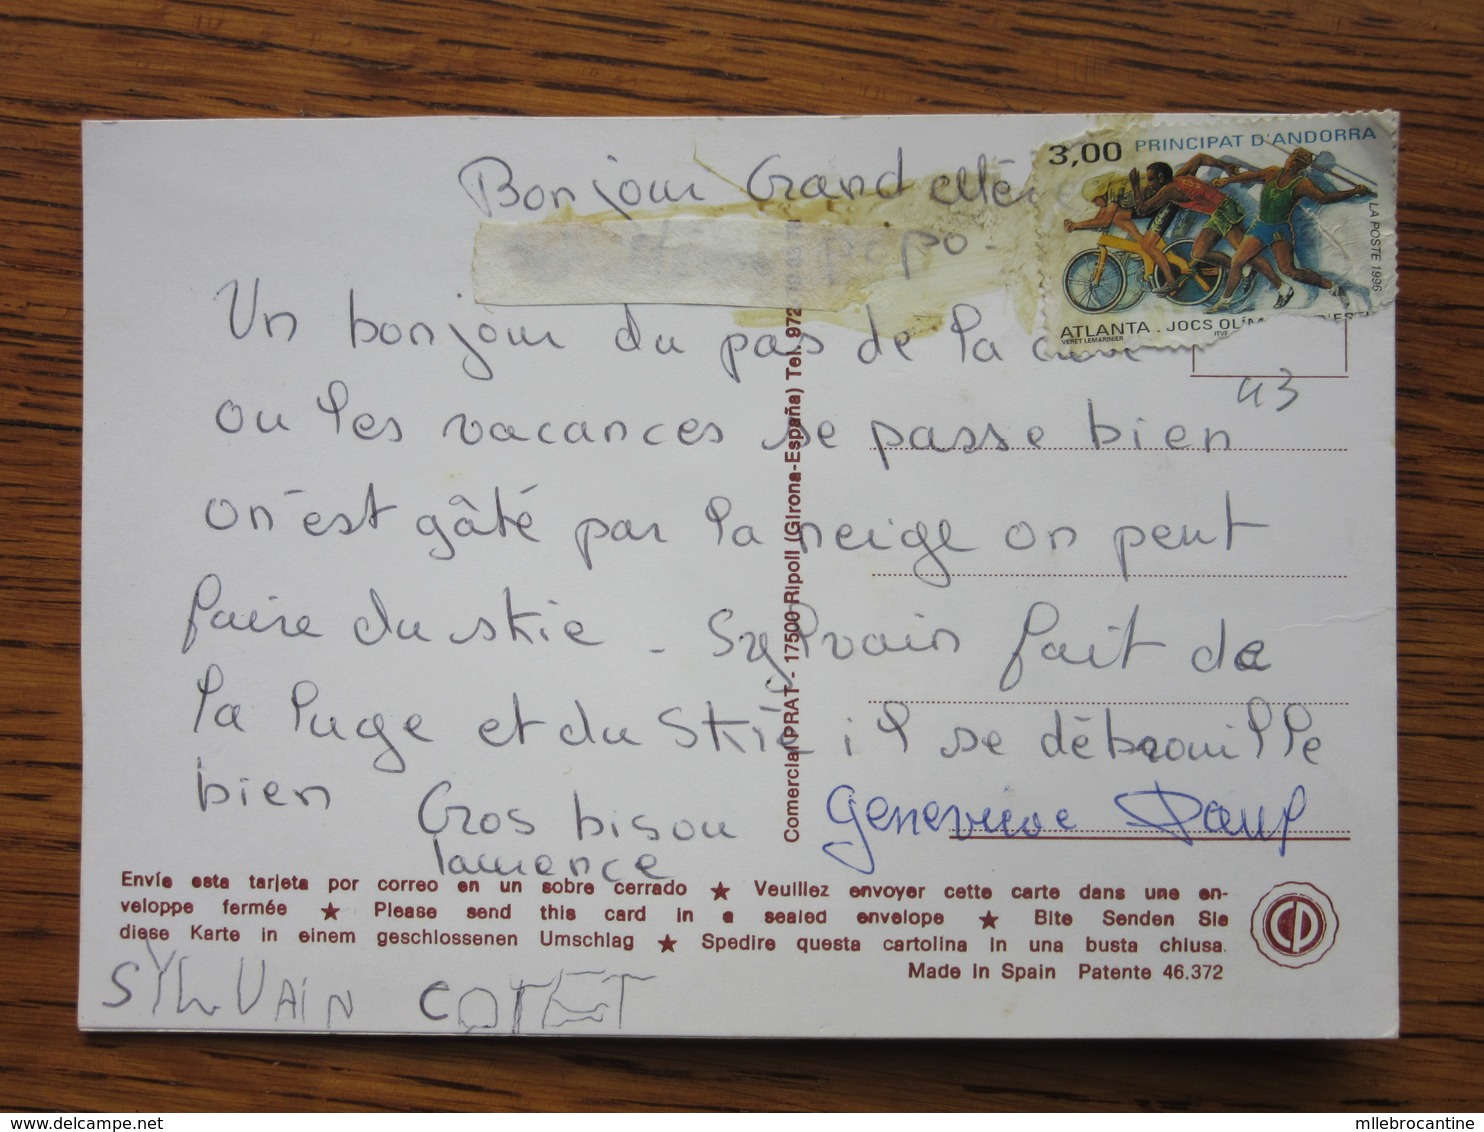 Bonjour Grand Mère
papo.
3,00 PRINCIPAT D'ANDORRA
LA POSTE 1996
ATLANTA . JOCS OLÍM
VERET LEMARINIER
ITVF
Un bonjour du pas de la
43
ou les vacances se passe bien
on est gâté par la neige on peut
faire du skie - Sylvain fait de
la luge et du skie il se débrouille
bien
Gros bisou Geneviève
laurence
Comercial PRAT - 17500 Ripoll (Girona-España) Tel. 972
Envíe esta tarjeta por correo en un sobre cerrado ★ Veuillez envoyer cette carte dans une en-
veloppe fermée ★ Please send this card in a sealed envelope ★ Bite Senden Sie
diese Karte in einem geschlossenen Umschlag ★ Spedire questa cartolina in una busta chiusa.
Made in Spain Patente 46.372
SYLVAIN COTTET
mllebrocantine